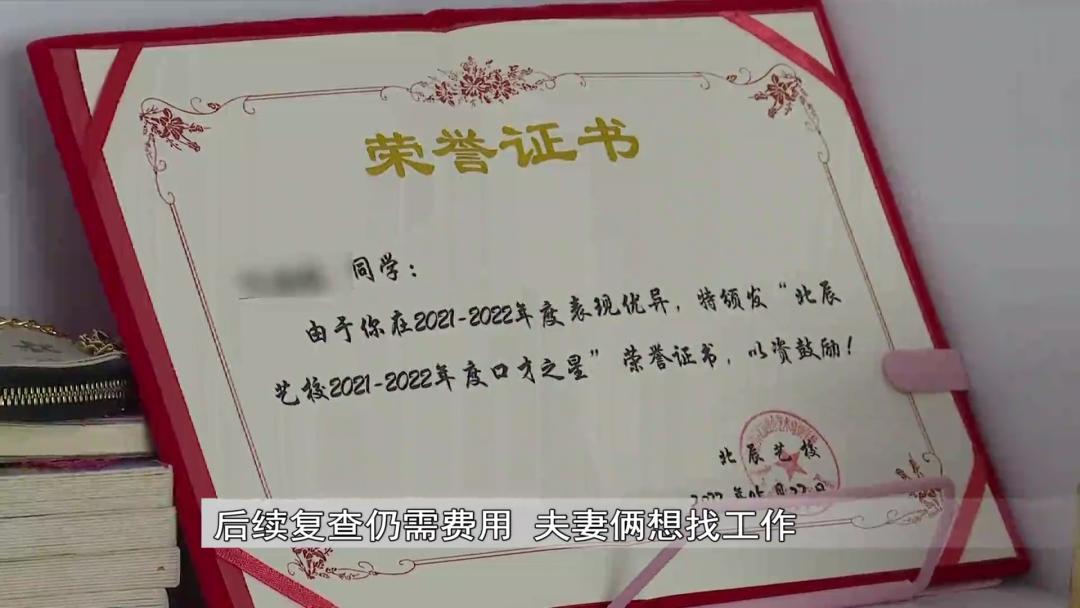 荣誉证书
同学：
由于你在2021-2022年度表现优异，特颁发“北辰
艺校2021-2022年度口才之星”荣誉证书，以资鼓励！
北辰艺校
后续复查仍需费用 夫妻俩想找工作